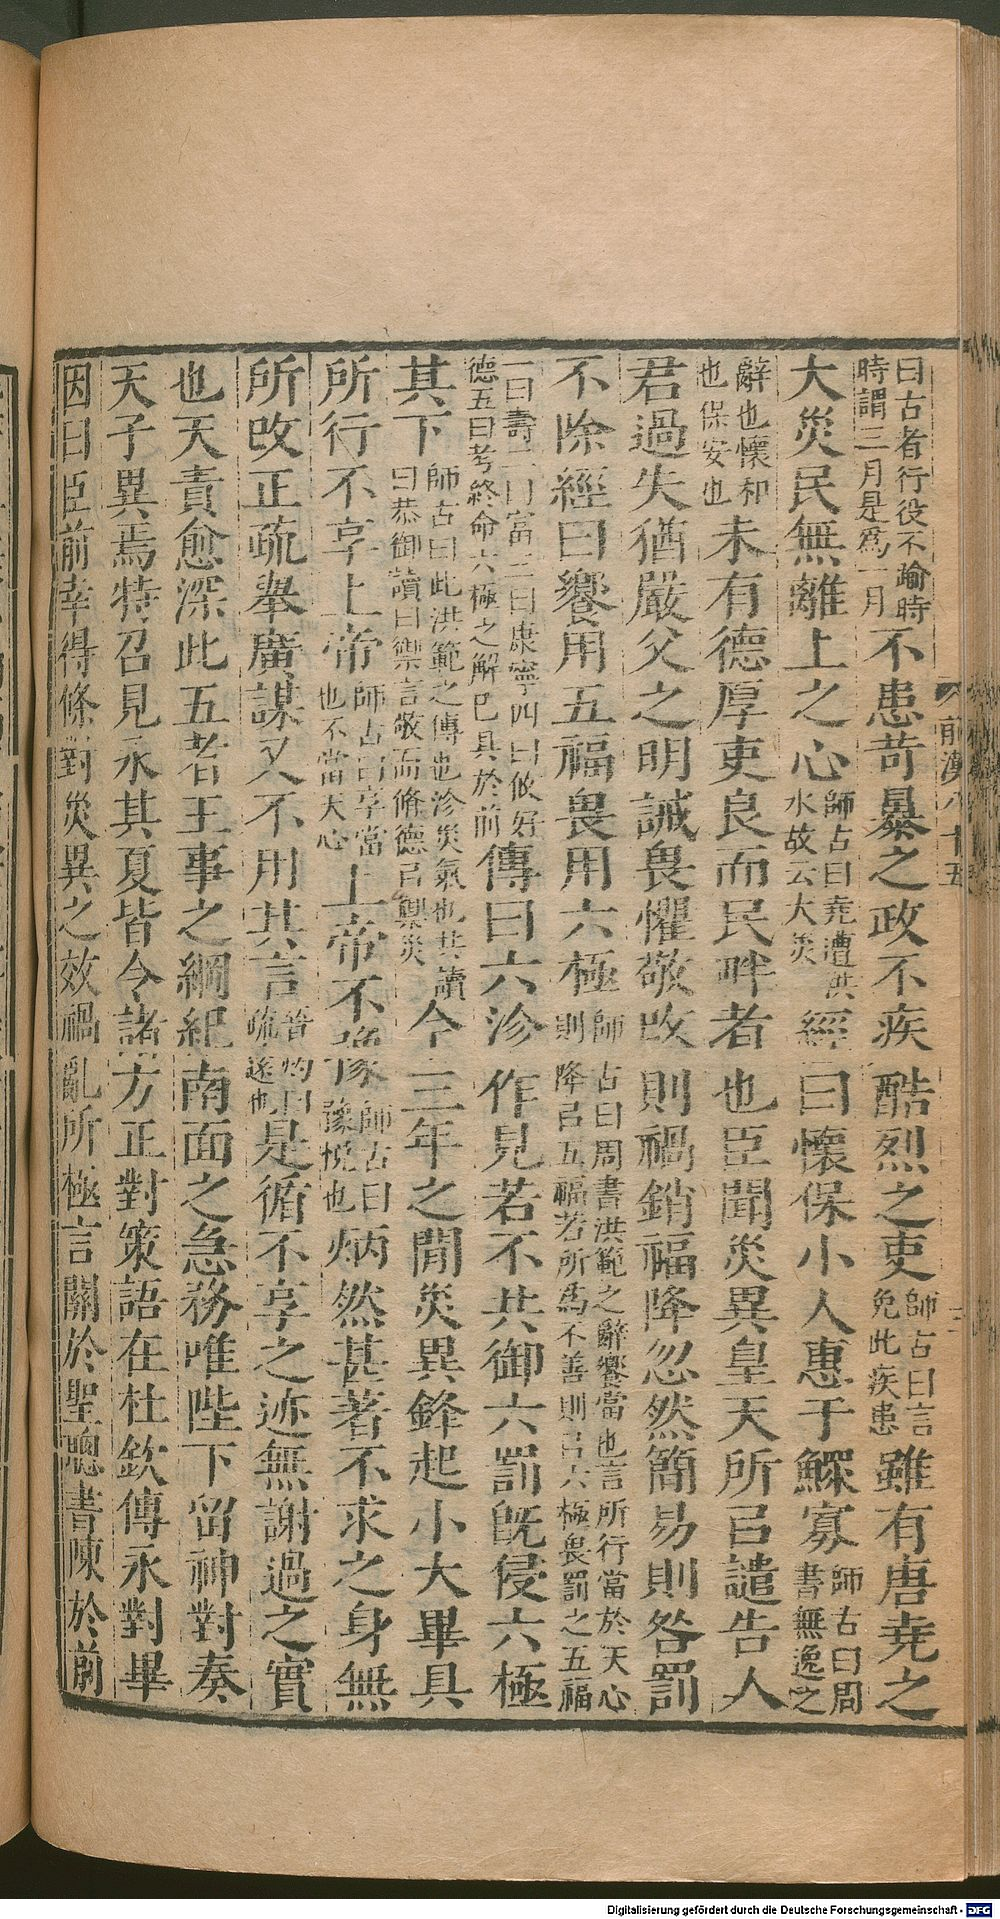 曰古者行役不踰時
時謂三月是爲一月
不患苛暴之政不疾酷烈之吏
師古曰言
免此疾患
雖有唐堯之
大災民無離上之心
師古曰堯遭洪
水故云大災
經曰懷保小人惠于鰥寡
師古曰周
書無逸之
辭也懷和
也保安也
未有德厚吏良而民畔者也臣聞災異皇天所㠯譴告人
君過失猶嚴父之明誡畏懼敬改則禍銷福降忽然簡易則咎罰
不除經曰饗用五福畏用六極
師古曰周書洪範之辭饗當也言所行當於天心
則降㠯五福若所爲不善則㠯六極畏罰之五福
一曰壽二曰富三曰康寧四曰攸好
德五曰考終命六極之解已具於前
傳曰六沴作見若不共御六罰旣侵六極
其下
師古曰此洪範之傳也沴災氣也共讀
曰恭御讀曰禦言敬而脩德㠯禦災
今三年之閒災異鋒起小大畢具
所行不享上帝
師古曰享當
也不當天心
上帝不豫
師古曰
豫悅也
炳然甚著不求之身無
所改正疏舉廣謀又不用其言
晉灼曰
疏遠也
是循不享之迹無謝過之實
也天責愈深此五者王事之綱紀南面之急務唯陛下留神對奏
天子異焉特召見永其夏皆令諸方正對策語在杜欽傳永對畢
因曰臣前幸得條對災異之效禍亂所極言關於聖聰書陳於前
前漢八十五